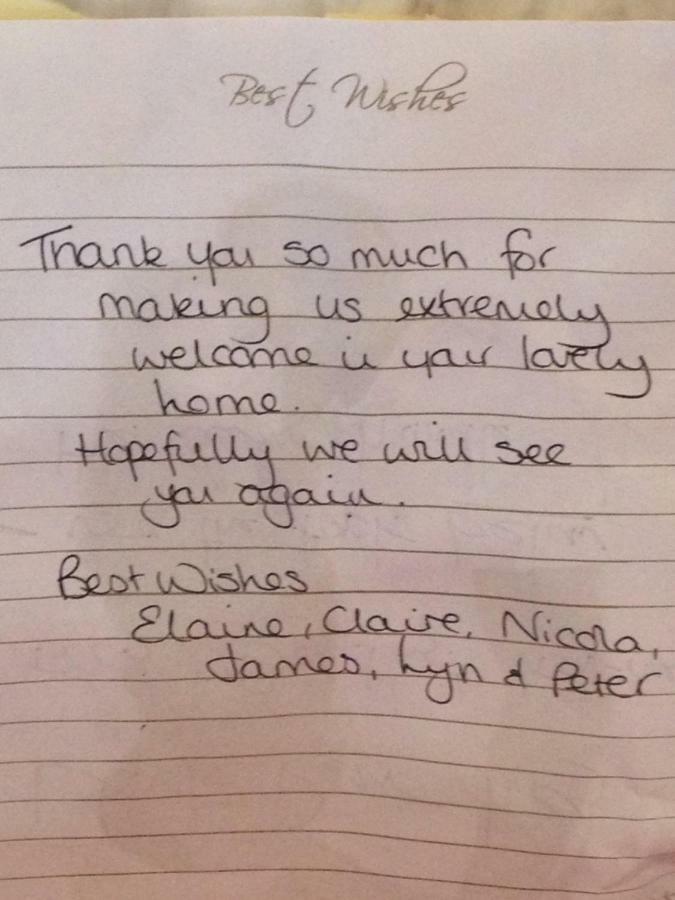 Best Wishes
Thank you so much for
making us extremely
welcome in your lovely
home.
Hopefully we will see
you again.
Best Wishes
Elaine, Claire, Nicola,
James, Lyn & Peter